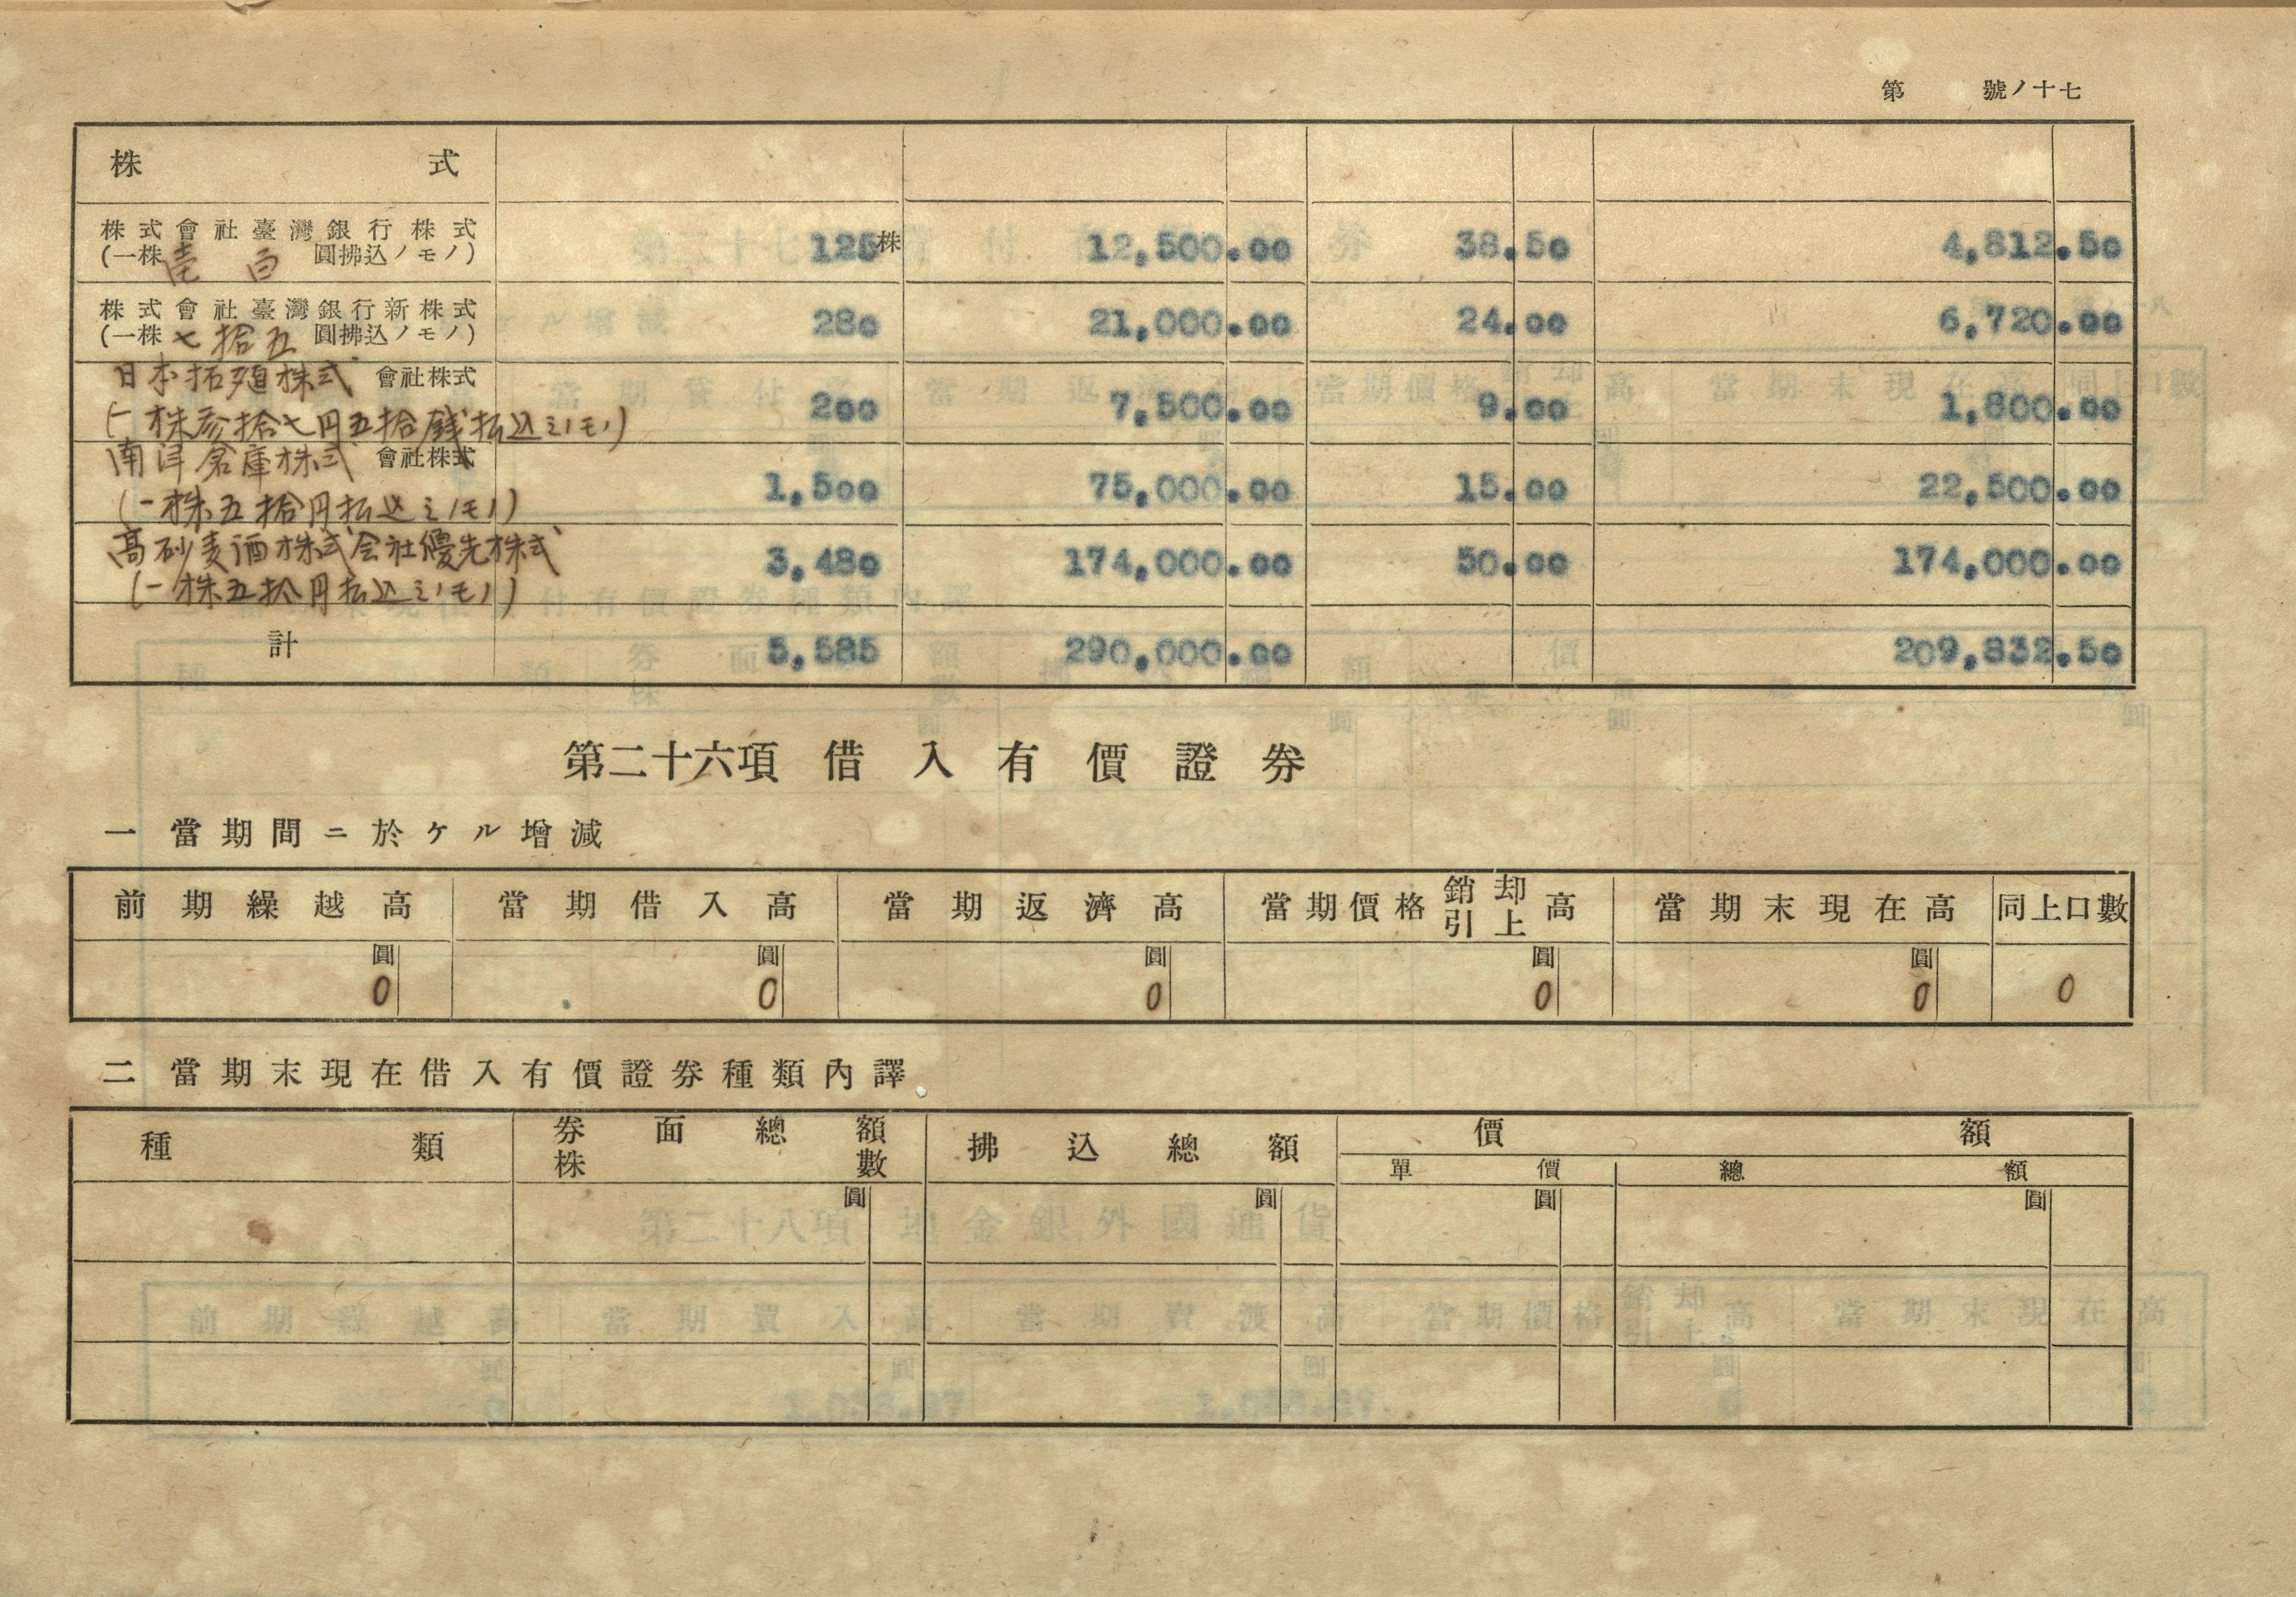 第 號ノ十七
株式
株式會社臺灣銀行株式 125株 12,500.00 38.50 4,812.50
(一株壱百圓拂込ノモノ)
株式會社臺灣銀行新株式 280 21,000.00 24.00 6,720.00
(一株七拾五圓拂込ノモノ)
日本拓殖株式會社株式 200 7,500.00 9.00 1,800.00
(一株参拾七円五拾銭払込ミノモノ)
南洋倉庫株式會社株式 1,500 75,000.00 15.00 22,500.00
(一株五拾円払込ミノモノ)
高砂麦酒株式会社優先株式 3,480 174,000.00 50.00 174,000.00
(一株五拾円払込ミノモノ)
計 5,585 290,000.00 209,832.50
第二十六項 借入有價證券
一 當期間ニ於ケル增減
前期繰越高 當期借入高 當期返濟高 當期價格銷却引上高 當期末現在高 同上口數
圓 圓 圓 圓 圓
0 0 0 0 0 0
二 當期末現在借入有價證券種類內譯
種類 券面總額 株數 拂込總額 價額
單價 總額
圓 圓 圓 圓